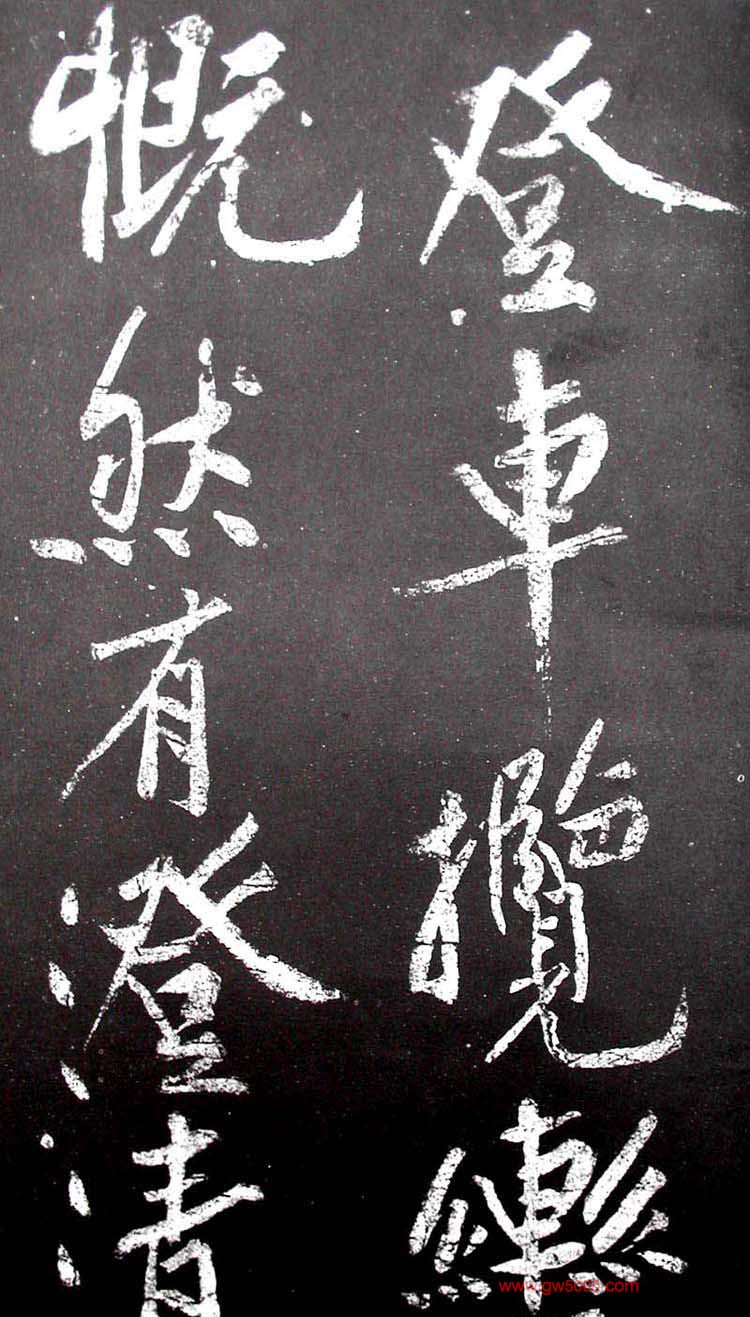 登車攬轡
慨然有澄清
www.gw5000.com